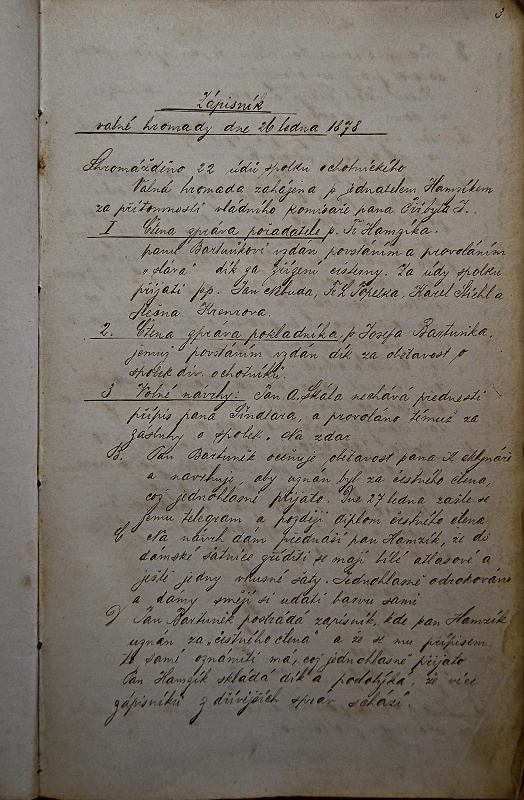 3
Zápisník
valné hromady dne 26 ledna 1878
Shromážděno 22 údů spolku ochotnického
Valná hromada zahájena p. jednatelem Hamzíkem
za přítomnosti vládního komisaře pana Přibyla J.
I Čtena zpráva pořadatele p. Fr Hamzíka.
panu Bartuňkovi vzdán povstáním a provoláním
"sláva" dík za zřízení cisterny. Za údy spolku
přijati pp. Jan Nebuda, Fr. L. Popelka, Karel Stichl a
slečna Krenrova.
2. Čtena zpráva pokladníka, p Josefa Bartuňka.
jemuž povstáním vzdán dík za obětavost o
spolek div. ochotníků.
3 Volné návrhy: Pan A. Skála nechává přednésti
přípis pana Šindlara, a provoláno témuž za
zásluhy o spolek. Na zdar
B. Pan Bartuněk oceňuje obětavost pana K. Mlynáře
a navrhuje, aby uznán byl za čestného člena,
což jednohlasně přijato. Dne 27 ledna zašle se
jemu telegram a později diplom čestného člena
C Na návrh dám přednáší pan Hamzík, že do
dámské šatnice zříditi se mají bílé atlasové a
ještě jedny vkusné šaty. Jednohlasně odsokováno
a dámy smějí si udati barvu sami
D Pan Bartuněk postrádá zápisník, kde pan Hamzík
uznán za "čestného člena" a že se mu přípisem
to samé oznámiti má, což jednohlasně přijato
Pan Hamzík skládá dík a podotýká, že více
zápisníků z dřívějších správ schází.